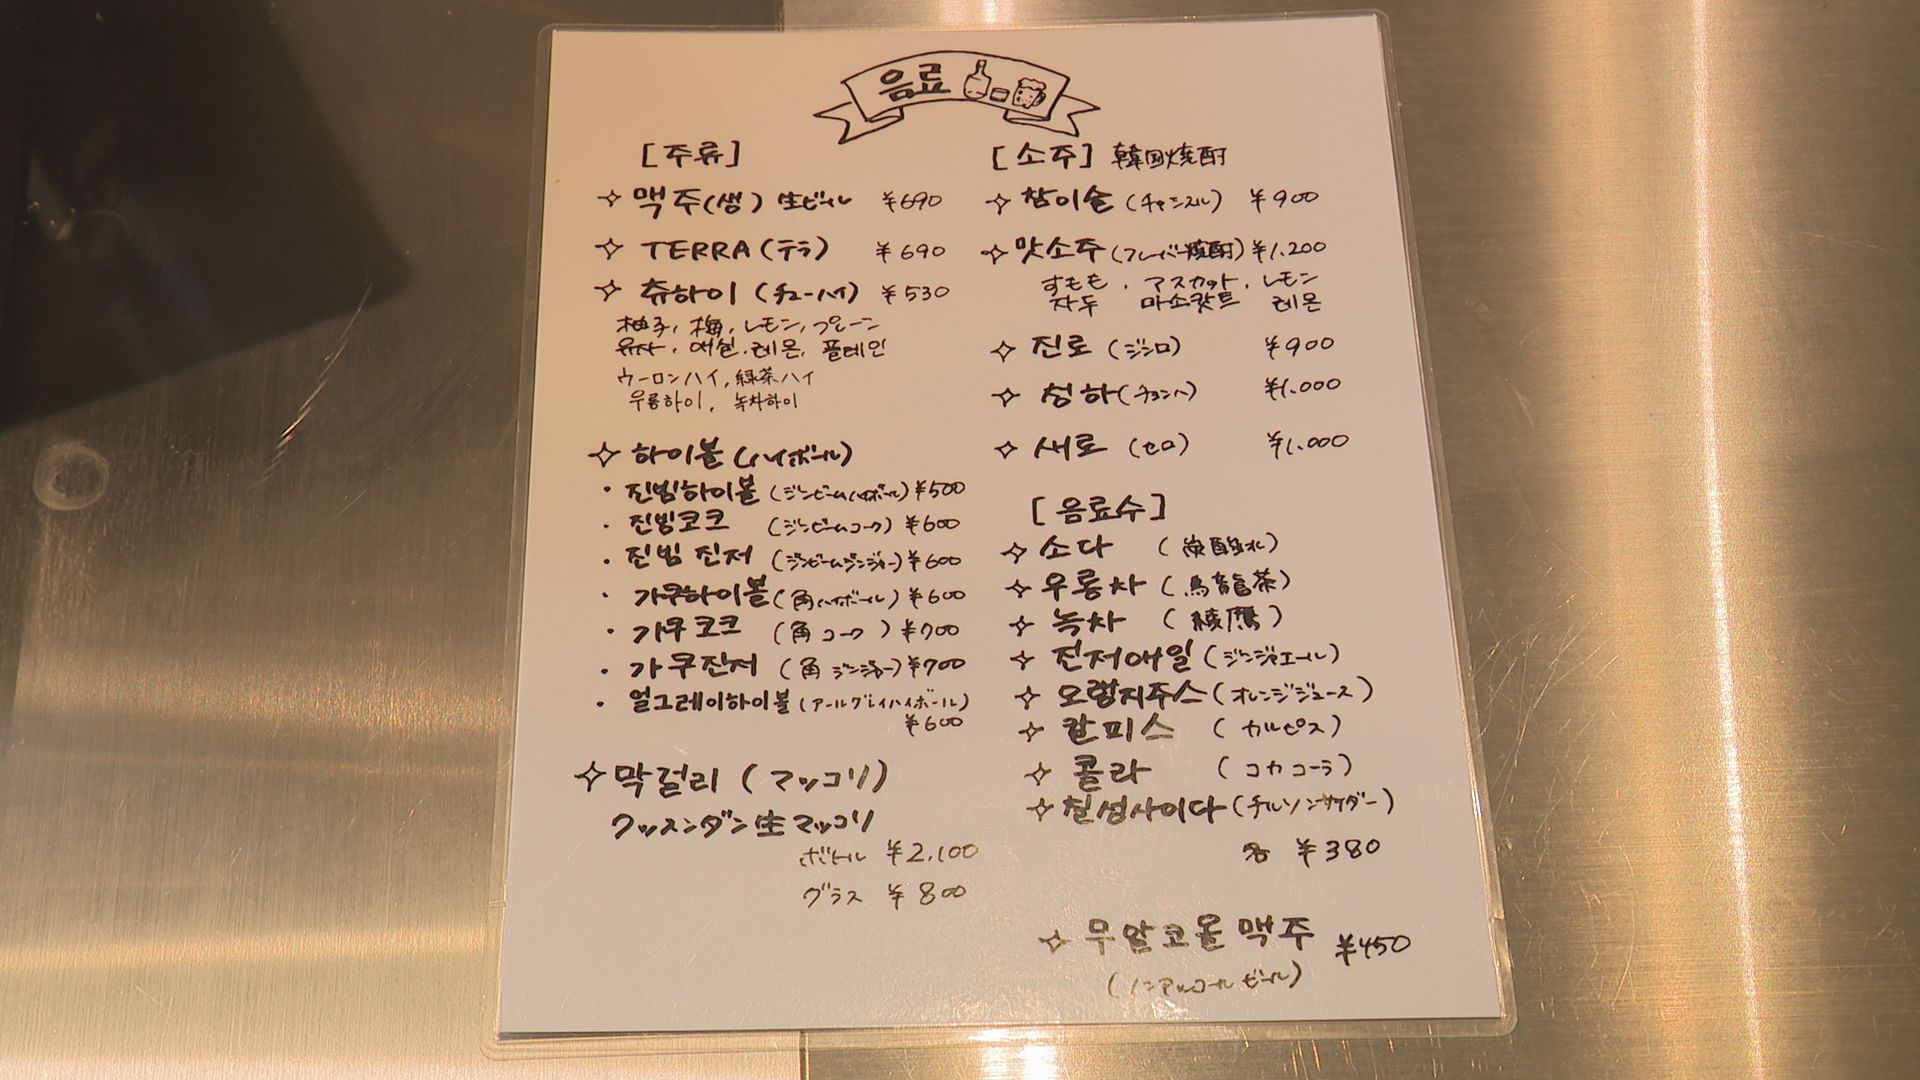 음료
[주류]
맥주(생) 生ビール ¥690
TERRA(テラ) ¥690
츄하이 (チューハイ) ¥530
柚子, 梅, レモン, プレーン
유자, 매실, 레몬, 플레인
ウーロンハイ, 緑茶ハイ
우롱하이, 녹차하이
하이볼 (ハイボール)
・진빔하이볼 (ジンビームハイボール) ¥500
・진빔코크 (ジンビームコーク) ¥600
・진빔 진저 (ジンビームジンジャー) ¥600
・가쿠하이볼 (角ハイボール) ¥600
・가쿠코크 (角コーク) ¥700
・가쿠진저 (角ジンジャー) ¥700
・얼그레이하이볼 (アールグレイハイボール)
¥600
막걸리 (マッコリ)
クッスンダン生マッコリ
ボトル ¥2.100
グラス ¥800
[소주] 韓国焼酎
참이슬 (チャミスル) ¥900
맛소주 (フレーバー焼酎) ¥1.200
すもも, マスカット, レモン
자두 마스캇트 레몬
진로 (ジンロ) ¥900
청하 (チョンハ) ¥1.000
새로 (セロ) ¥1.000
[음료수]
소다 (炭酸水)
우롱차 (烏龍茶)
녹차 (綾鷹)
진저애일 (ジンジャエール)
오랜지주스 (オレンジジュース)
칼피스 (カルピス)
콜라 (コカコーラ)
칠성사이다 (チルソンサイダー)
各 ¥380
무알코올 맥주 ¥450
(ノンアルコールビール)